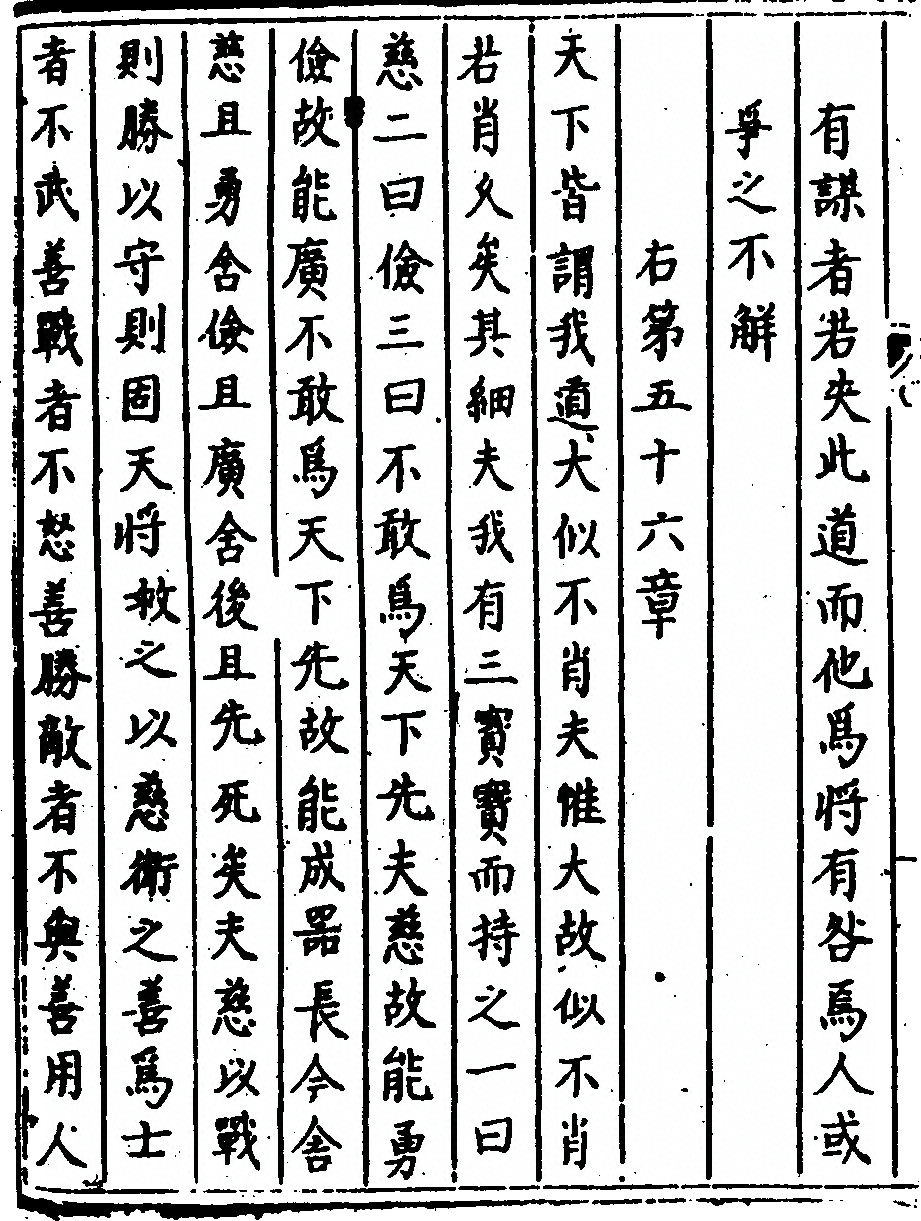 有謀者若失此道而他爲將有咎焉人或
爭之不解
右第五十六章
天下皆謂我道大似不肖夫惟大故似不肖
若肖久矣其細夫我有三寳寳而持之一曰
慈二曰儉三曰不敢爲天下先夫慈故能勇
儉故能廣不敢爲天下先故能成器長今舍
慈且勇舍儉且廣舍後且先死矣夫慈以戰
則勝以守則固天將救之以慈衛之善爲士
者不武善戰者不怒善勝敵者不與善用人